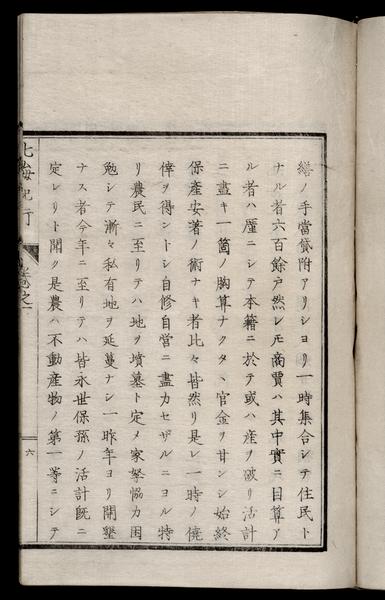 繕ノ手當貸附アリシヨリ一時集合シテ住民ト
ナル者六百餘戸然レ𪜈商賈ハ其中實ニ目算ア
ル者ハ厪ニシテ本籍ニ於テ或ハ産ヲ破リ活計
ニ盡キ一箇ノ胸算ナクタヽ官金ヲ甘ンシ始終
保産安著ノ術ナキ者比々皆然リ是レ一時ノ僥
倖ヲ得ントシ自修自營ニ盡力セザルニヨル特
リ農民ニ至リテハ地ヲ墳墓ト定メ家拏協力困
勉シテ漸々私有地ヲ延蔓ナシ一昨年ヨリ開墾
ナス者今年ニ至リテハ皆永世保孫ノ活計既ニ
定レリト聞ク是農ハ不動産物第一等ニシテ
北海紀行
卷之一
六